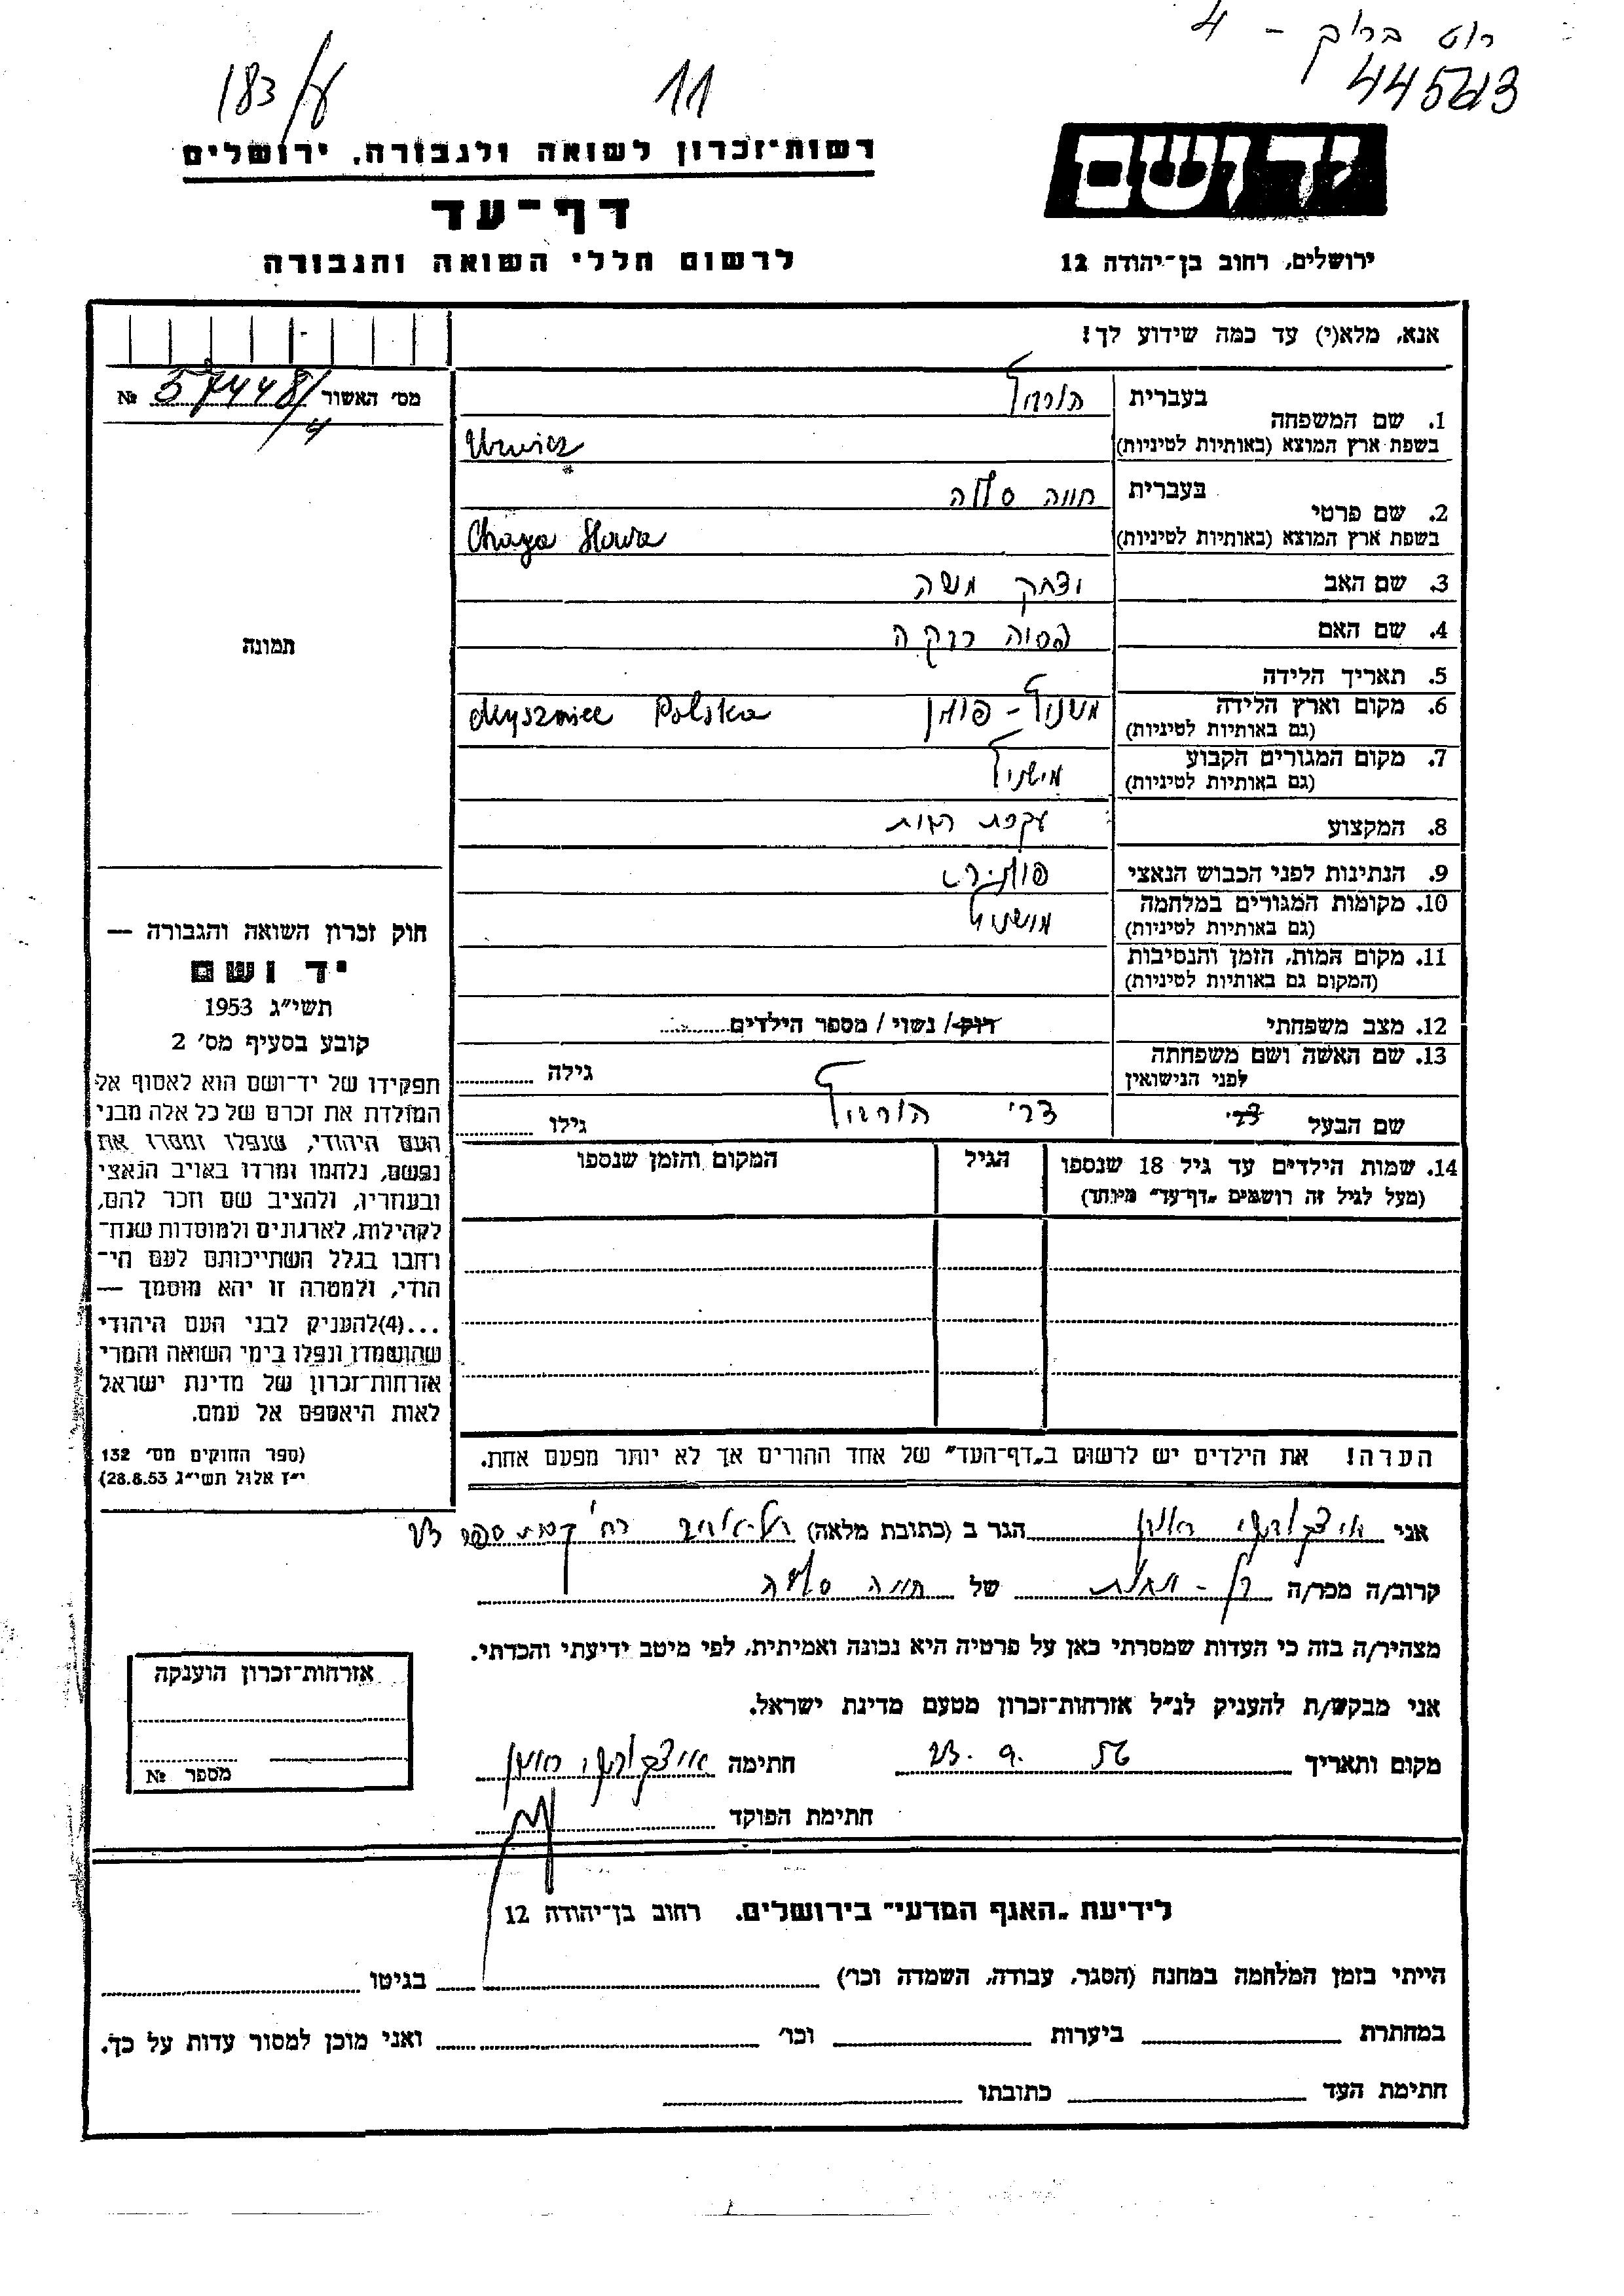 רוט ברוך - 4
183/ע
11
445613
רשות־זכרון לשואה ולגבורה, ירושלים
יד ושם
דף־עד
לרשום חללי השואה והגבורה
ירושלים, רחוב בן־יהודה 12
אנא, מלא(י) עד כמה שידוע לך!
מס׳ האשור 57448/4 №
1. שם המשפחה
בעברית הורוויץ
בשפת ארץ המוצא (באותיות לטיניות) Urwicz
2. שם פרטי
בעברית חווה סלוה
בשפת ארץ המוצא (באותיות לטיניות) Chaya Slowa
3. שם האב יצחק משה
4. שם האם פסיה רבקה
5. תאריך הלידה
6. מקום וארץ הלידה משניץ - פולין Myszyniec Polska
(גם באותיות לטיניות)
7. מקום המגורים הקבוע מישניץ
(גם באותיות לטיניות)
8. המקצוע עקרת בית
9. הנתינות לפני הכבוש הנאצי פולנית
10. מקומות המגורים במלחמה מושניץ
(גם באותיות לטיניות)
11. מקום המות, הזמן והנסיבות
(המקום גם באותיות לטיניות)
12. מצב משפחתי רוק/ נשוי / מספר הילדים
13. שם האשה ושם משפחתה
לפני הנישואין
גילה
שם הבעל צבי הורוויץ גילו
14. שמות הילדים עד גיל 18 שנספו
(מעל לגיל זה רושמים „דף־עד״ מיוחד)
הגיל
המקום והזמן שנספו
הערה! את הילדים יש לרשום ב„דף־העד״ של אחד ההורים אך לא יותר מפעם אחת.
תמונה
חוק זכרון השואה והגבורה —
יד ושם
תשי״ג 1953
קובע בסעיף מס׳ 2
תפקידו של יד־ושם הוא לאסוף אל
המולדת את זכרם של כל אלה מבני
העם היהודי, שנפלו ומסרו את
נפשם, נלחמו ומרדו באויב הנאצי
ובעוזריו, ולהציב שם וזכר להם,
לקהילות, לארגונים ולמוסדות שנח־
רבו בגלל השתייכותם לעם הי־
הודי, ולמטרה זו יהא מוסמך —
...(4)להעניק לבני העם היהודי
שהושמדו ונפלו בימי השואה והמרי
אזרחות־זכרון של מדינת ישראל
לאות היאספם אל עמם.
(ספר החוקים מס׳ 132
י״ז אלול תשי״ג 28.8.53)
אני הגר ב (כתובת מלאה) תל-אביב רח' קרית ספר 23
קרוב/ה מכר/ה בן - אחות של חווה סלוה
מצהיר/ה בזה כי העדות שמסרתי כאן על פרטיה היא נכונה ואמיתית, לפי מיטב ידיעתי והכרתי.
אני מבקש/ת להעניק לנ״ל אזרחות־זכרון מטעם מדינת ישראל.
מקום ותאריך 23. 9. 56 חתימה
חתימת הפוקד
אזרחות־זכרון הוענקה
מספר №
לידיעת „האגף המדעי״ בירושלים. רחוב בן־יהודה 12
הייתי בזמן המלחמה במחנה (הסגר, עבודה, השמדה וכו׳) בגיטו
במחתרת ביערות וכו׳ ואני מוכן למסור עדות על כך.
חתימת העד כתובתו